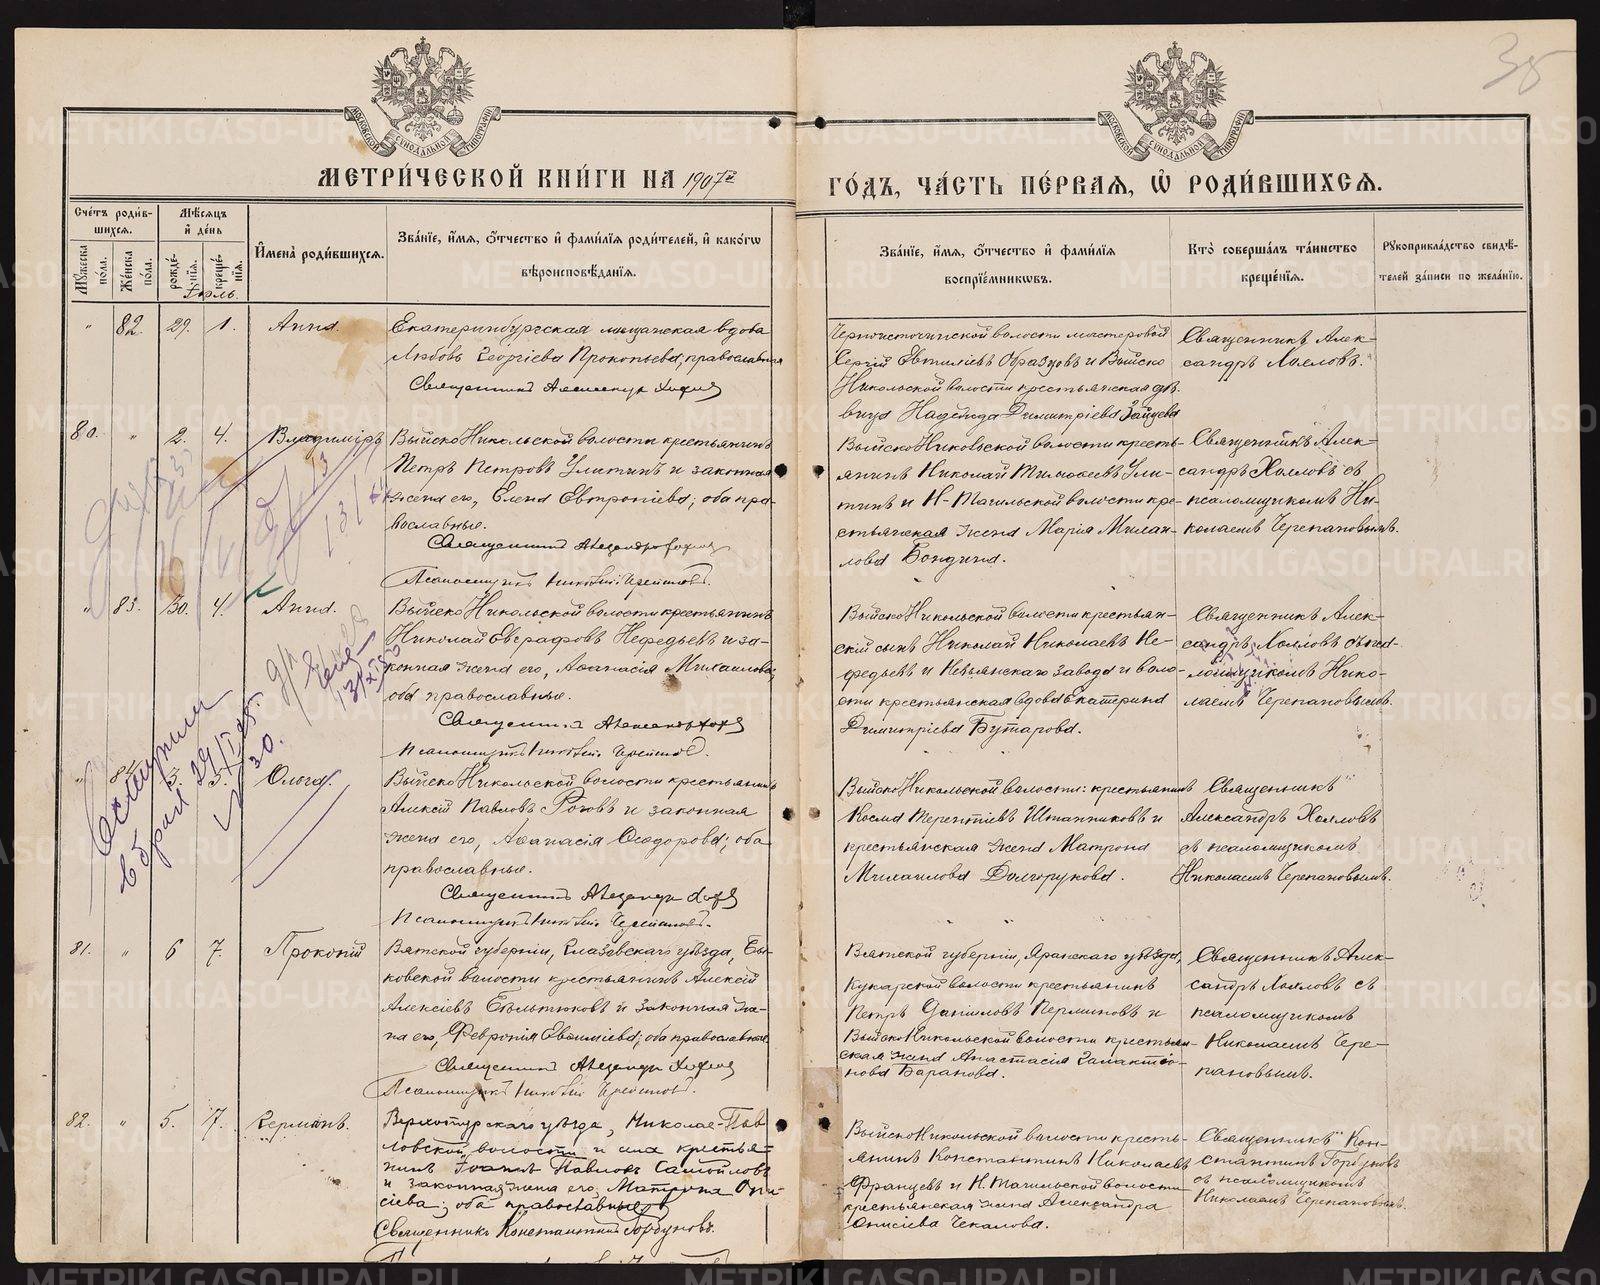 35
МОСКОВСКОЙ СѴНОДАЛЬНОЙ ТИПОГРАФІИ
МОСКОВСКОЙ СѴНОДАЛЬНОЙ ТИПОГРАФІИ
МЕТРИ́ЧЕСКОЙ КНИ́ГИ НА 1907й
ГО́ДЪ, ЧА́СТЬ ПЕ́РВАЯ, Ѡ҆ РОДИ́ВШИХСЯ.
Сче́тъ роди́в-
шихся.
Мѣ́сяцъ
и҆ де́нь
Мꙋ́жеска по́ла.
Же́нска по́ла.
рожде́-
нїя.
креще́-
нїя.
Іюль.
И҆мена̀ роди́вшихся.
Зва́нїе, и҆́мя, ѻ҆́тчество и҆ фами́лїя роди́телей, и҆ како́гѡ
вѣроисповѣ́данїя.
Зва́нїе, и҆́мя, ѻ҆́тчество и҆ фами́лїя
воспрїе́мниковъ.
Кто̀ соверша́лъ та́инство
креще́нїя.
Рꙋкоприкла́дство свидѣ́-
телей за́писи по жела́нїю.
" 82. 29. 1. Анна.
Екатеринбургская мѣщанская вдова
Любовь Георгіева Прокопьева, православная
Священникъ Александръ Хохловъ
Черноисточинской волости мастеровой
Сергій Евтихіевъ Образцовъ и Выйско
Никольской волости крестьянская дѣ-
вица Надежда Димитріева Зайцева
Священникъ Алек-
сандръ Хохловъ.
80. " 2. 4. Владиміръ
Выйско Никольской волости крестьянинъ
Петръ Петровъ Улитинъ и законная
жена его, Елена Евтропіева; оба пра-
вославные.
Священникъ Александръ Хохловъ
Псаломщикъ Николай Черепановъ.
Выйско Никольской волости кресть-
янинъ Николай Тимоѳеевъ Ули-
тинъ и Н-Тагильской волости кре-
стьянская жена Марія Михаи-
лова Бондина.
Священникъ Алек-
сандръ Хохловъ съ
псаломщикомъ Ни-
колаемъ Черепановымъ.
" 83. 30. 4. Анна.
Выйско Никольской волости крестьянинъ
Николай Евграфовъ Нефедьевъ и за-
конная жена его, Аѳанасія Михаилова,
оба православные.
Священникъ Александръ Хохловъ
Псаломщикъ Николай Черепановъ.
Выйско Никольской волости крестьян-
скій сынъ Николай Николаевъ Не-
федьевъ и Невьянскаго завода и воло-
сти крестьянская вдова Екатерина
Димитріева Бутарова.
Священникъ Алек-
сандръ Хохловъ съ псал-
мщикомъ Нико-
лаемъ Черепановымъ.
" 84. 3. 5. Ольга.
Выйско Никольской волости крестьянинъ
Алексій Павловъ Роговъ и законная
жена его, Аѳанасія Ѳеодорова; оба
православные.
Священникъ Александръ Хохловъ
Псаломщикъ Николай Черепановъ.
Выйско Никольской волости: крестьянинъ
Косма Терентіевъ Штанниковъ и
крестьянская жена Матрона
Михаилова Долгорукова.
Священникъ
Александръ Хохловъ
съ псаломщикомъ
Николаемъ Черепановымъ.
81. " 6 7. Прокопій
Вятской губерніи, Глазовскаго уѣзда, Бы-
ковской волости крестьянинъ Алексій
Алексіевъ Бѣльтюковъ и законная же-
на его, Февронія Евѳиміева; оба православные.
Священникъ Александръ Хохловъ
Псаломщикъ Николай Черепановъ.
Вятской губерніи, Яранскаго уѣзда,
Кукарской волости крестьянинъ
Петръ Даніиловъ Перминовъ и
Выйско Никольской волости крестьян-
ская жена Анастасія Галактіо-
нова Баранова.
Священникъ Алек-
сандръ Хохловъ съ
псаломщикомъ
Николаемъ Чере-
пановымъ.
82. " 5. 7. Германъ.
Верхотурскаго уѣзда, Николае-Пав-
ловской волости и села крестья-
нинъ Іоаннъ Павловъ Самойловъ
и законная жена его Матрона Они-
сіева; оба православные
Священникъ Константинъ Горбуновъ.
Выйско Никольской волости кресть-
янинъ Константинъ Николаевъ
Францевъ и Н. Тагильской волости
крестьянская жена Александра
Онисіева Чекалова.
Священникъ Кон-
стантинъ Горбуновъ
съ псаломщикомъ
Николаемъ Черепановымъ.